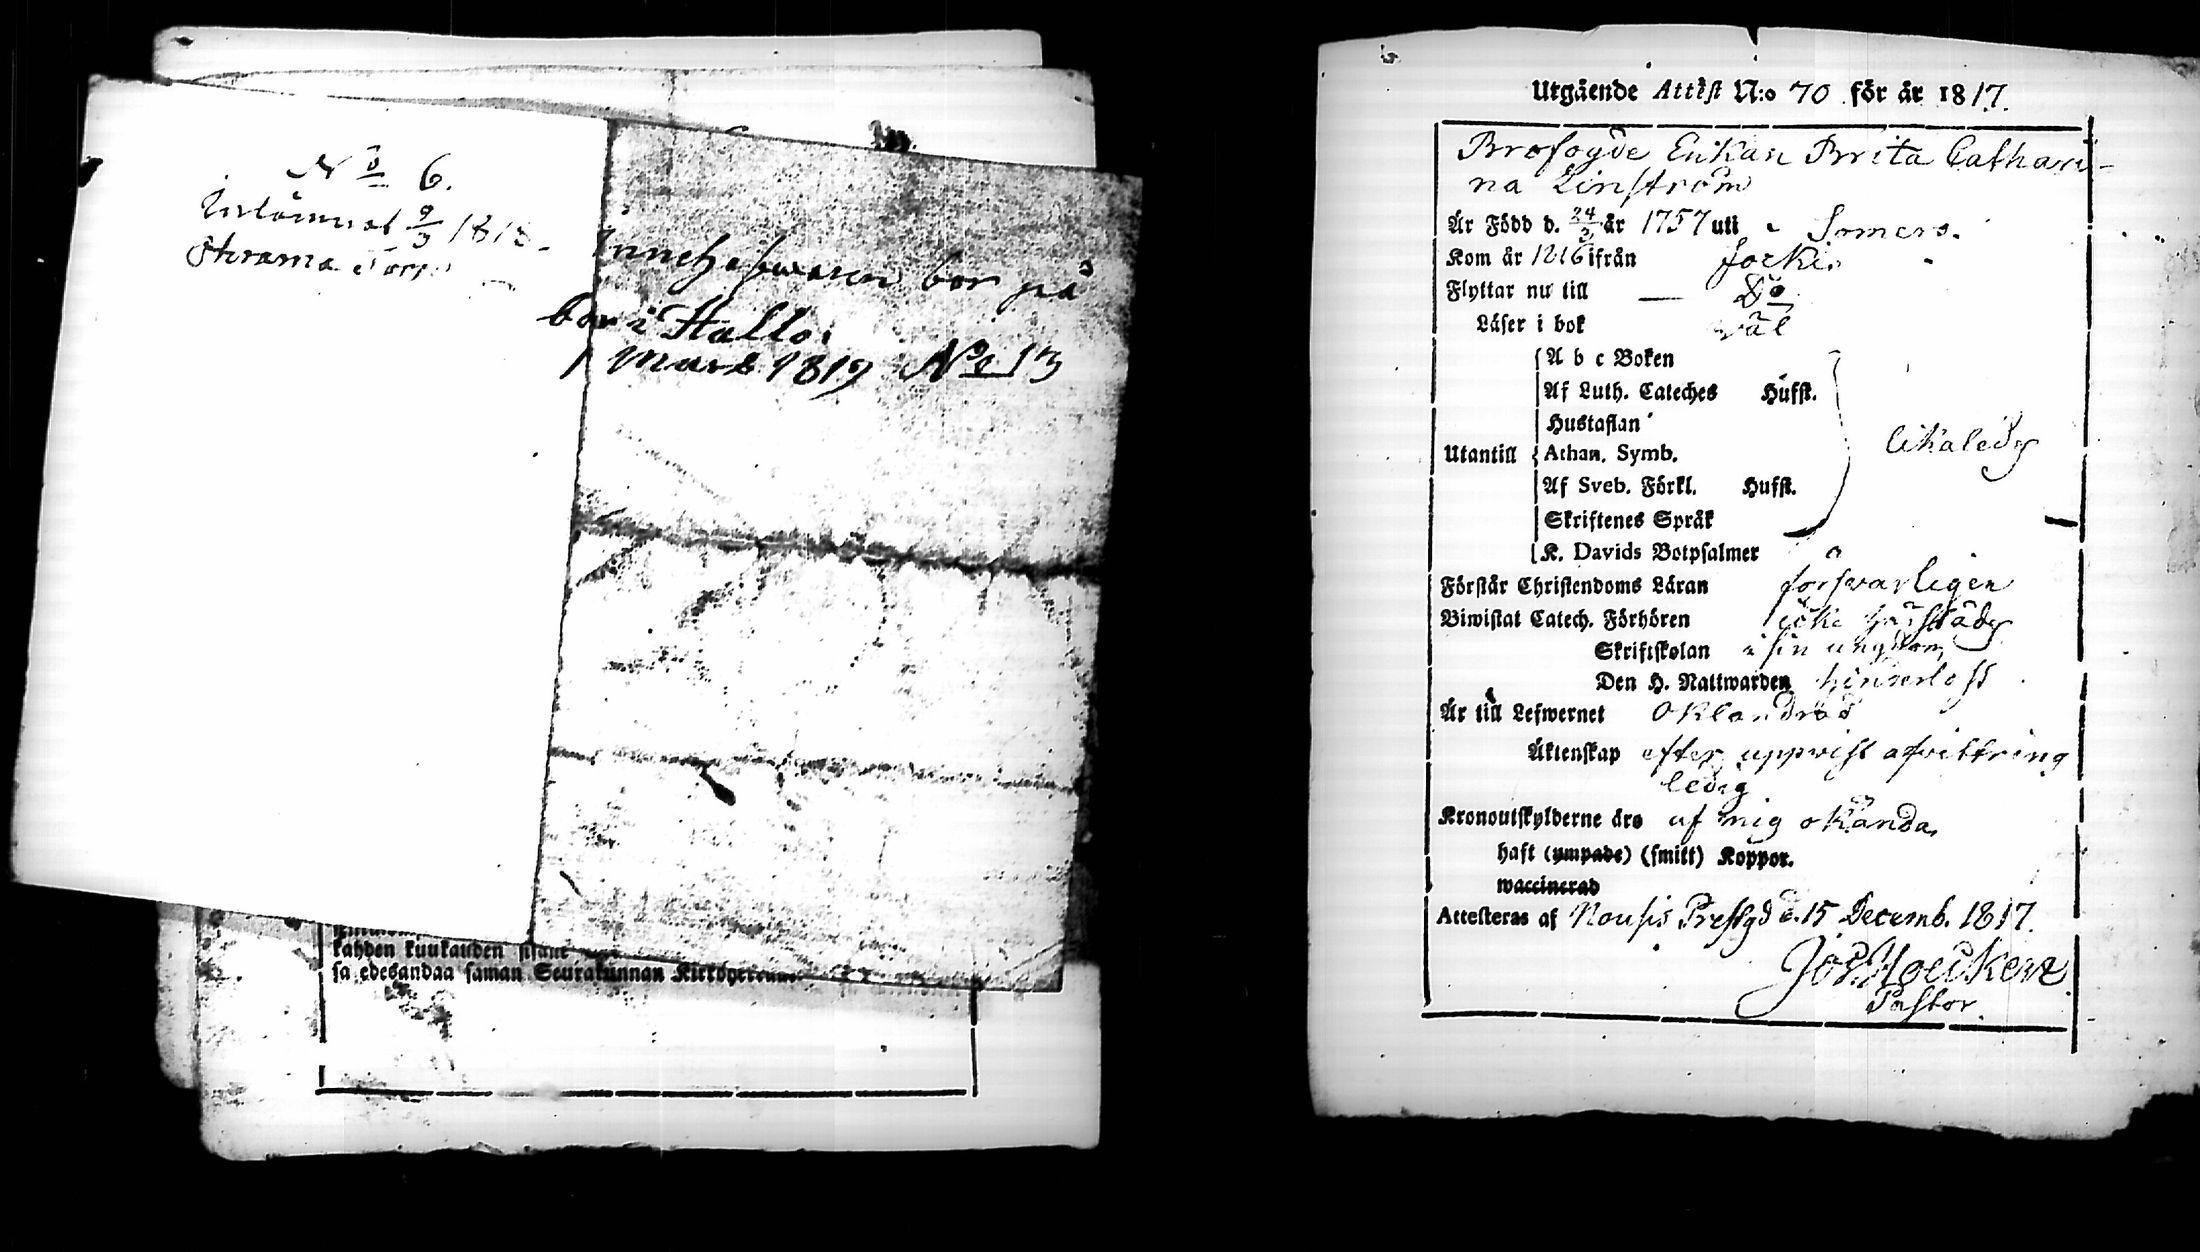 N:o 6.
Inlämnat 9/3 1818.
Innehafwaren bor på
bor i Hallo.
1 Mars 1819 No 13
kahden kuukauden sisäut
sa edesandaa saman Seurakunnan
Utgående Attest N:o 70 för år 1817.
Brofogde Enkan Brita Cathari-
na Linström
Är Född d. 24/3 år 1757 uti Somero.
Kom år 1816 ifrån Jockis
Flyttar nu till — Do
Läser i bok väl
A b c Boken
Af Luth. Cateches Hufst.
Hustaflan
Utantill Athan. Symb. likaledes
Af Sveb. Förkl. Hufst.
Skriftenes Språk
K. Davids Botpsalmer
Förstår Christendoms Läran försvarligen
Biwistat Catech. Förhören icke härstädes
Skriftskolan i sin ungdom
Den H. Nattwarden hinderlöst
Är till Lefwernet oklandrad
Äktenskap efter uppvist afvittring
ledig
Kronoutskylderne äro af mig okända
haft (ympade) (smitt) Koppor.
waccinerad
Attesteras af Nousis Prestgd d. 15 Decemb. 1817.
Pastor.